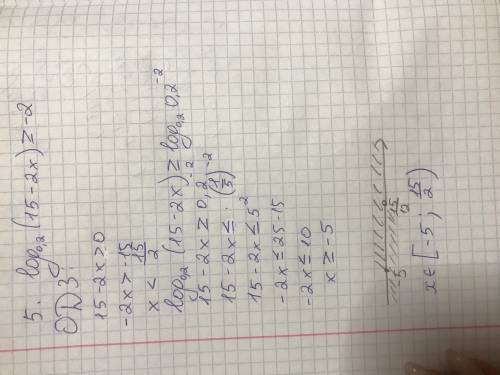 5. log₀,₂(15-2x) ≥ -2
ОДЗ:
15-2x>0
-2x>-15
x < 15/2
log₀,₂(15-2x) ≥ log₀,₂ 0,2⁻²
15-2x ≥ 0,2⁻²
15-2x ≤ (1/5)⁻²
15-2x ≤ 5²
-2x ≤ 25-15
-2x ≤ 10
x ≥ -5
-5 15/2
x∈[-5; 15/2)